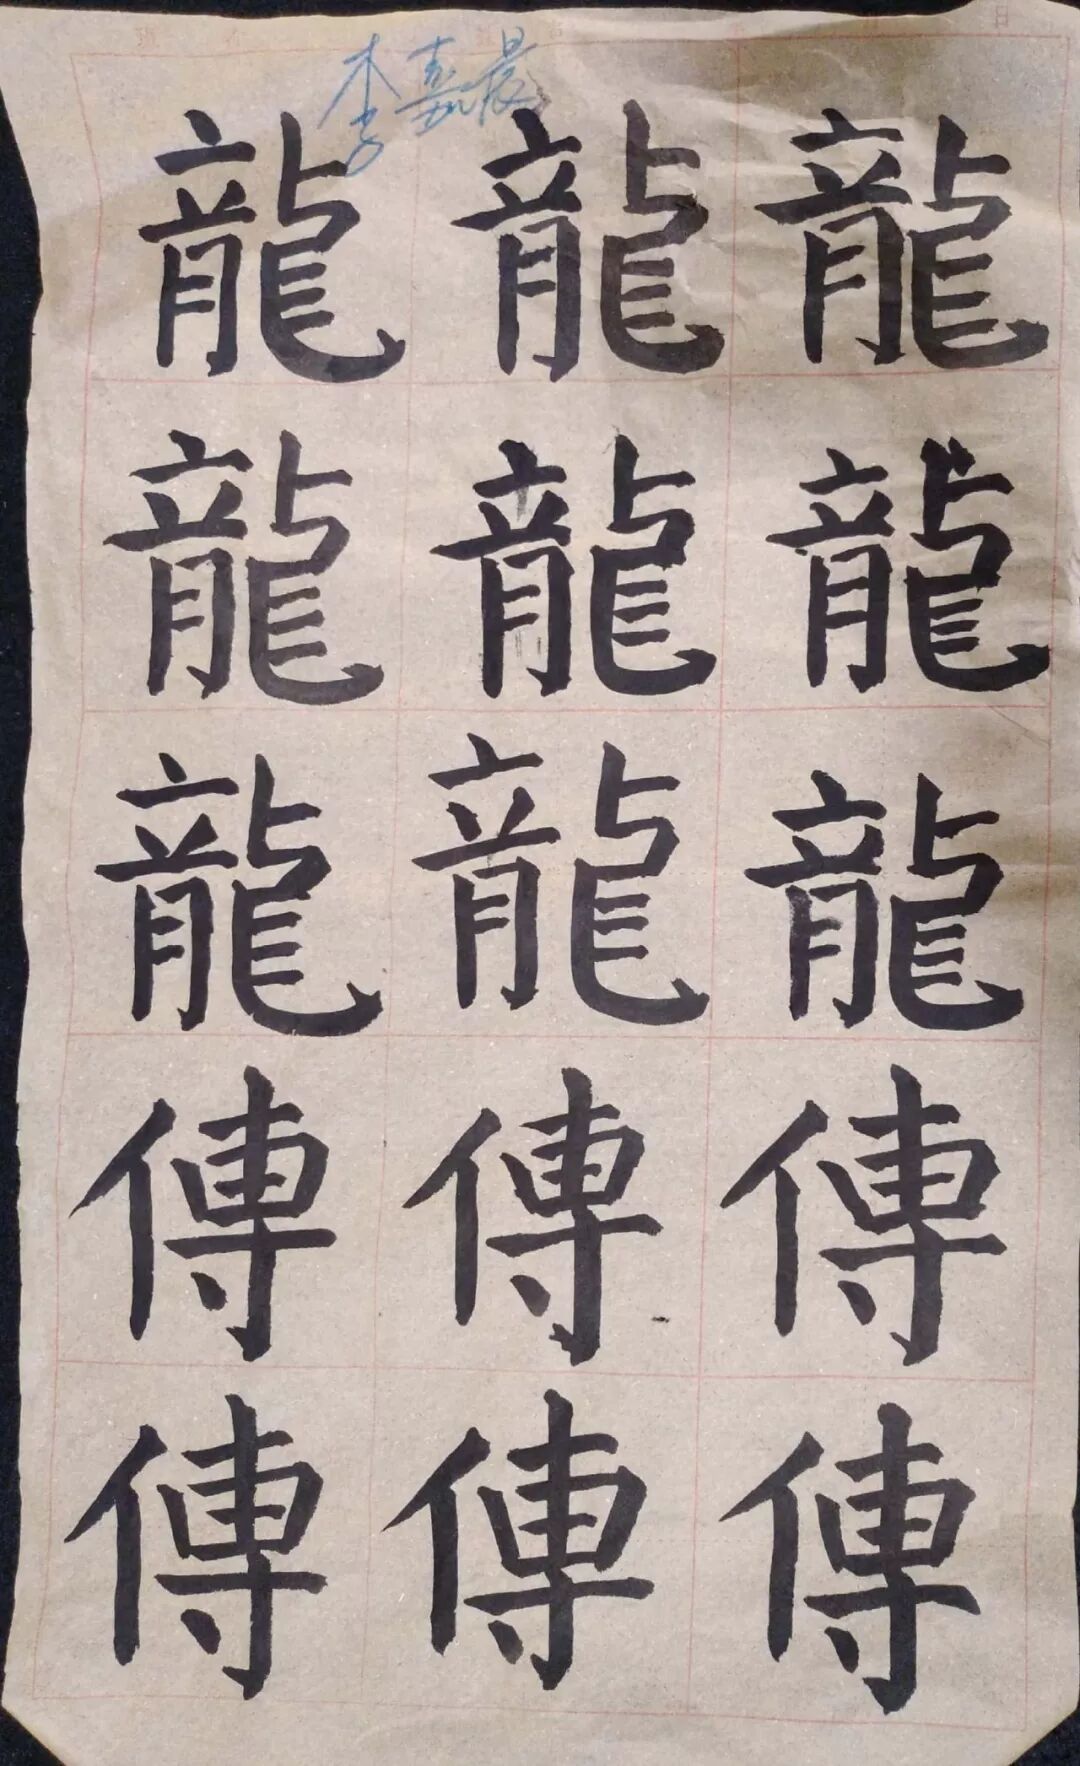 李嘉晨
龍龍龍
龍龍龍
龍龍龍
傳傳傳
傳傳傳